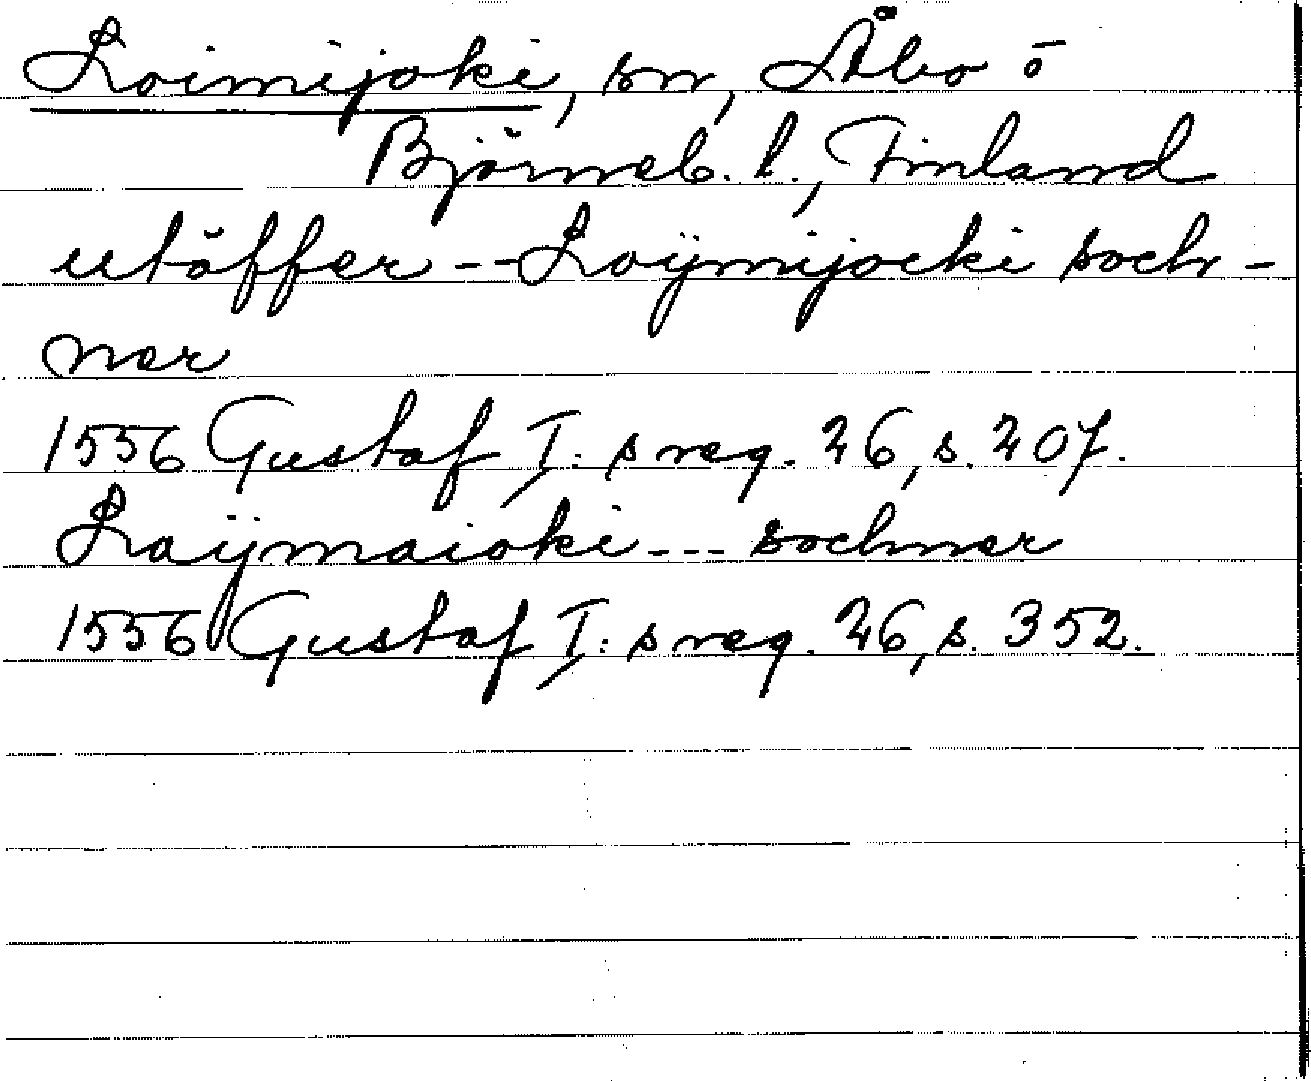 Loimijoki, sn, Åbo o
Björneb. l., Finland
utöffver -- Loÿmijocki soch-
ner
1556 Gustaf I: s reg. 26, s. 207.
Laÿmaioki --- sochner
1556 Gustaf I: s reg. 26, s. 352.